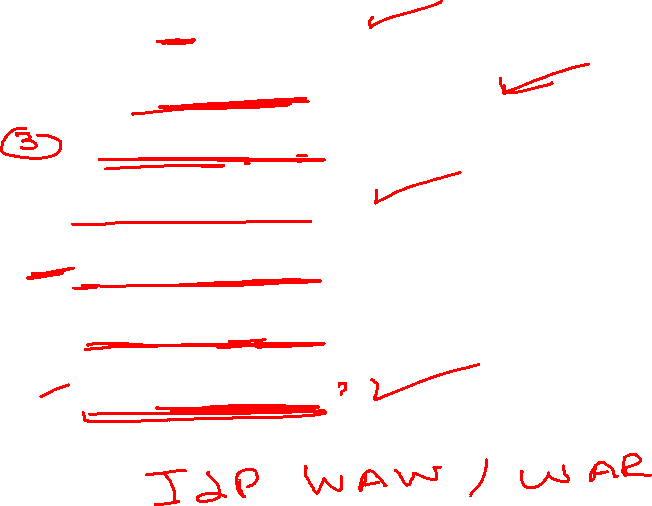 3
? 2
IdP WAW / WAR